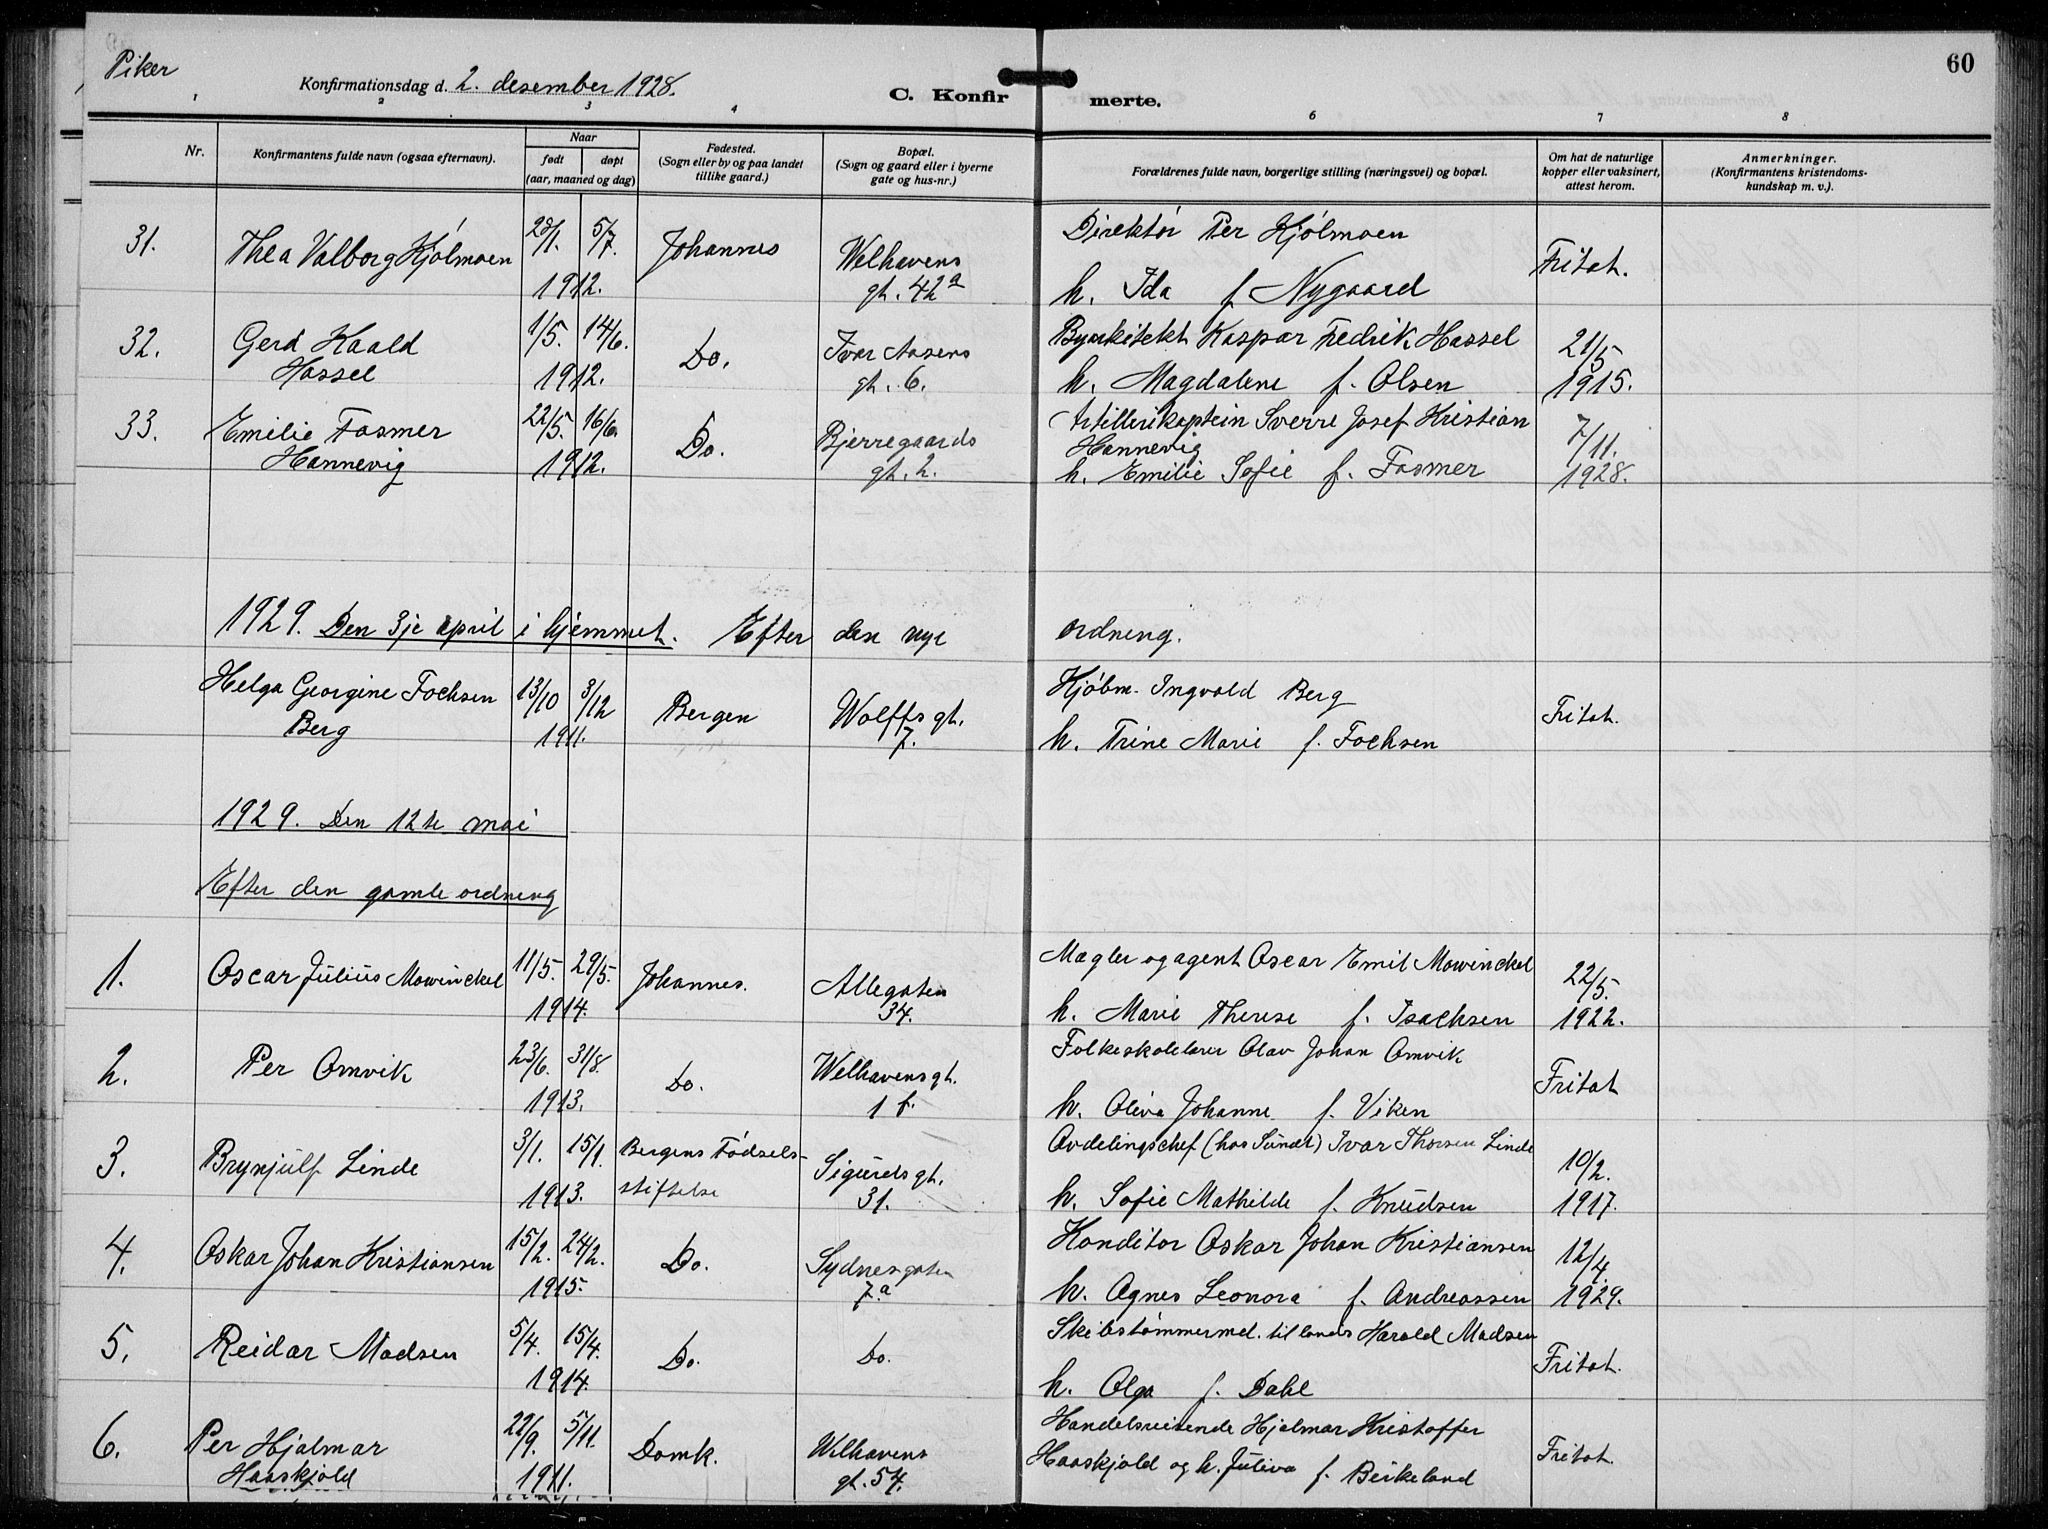 60
Piker
Konfirmationsdag d. 2. desember 1928.
C. Konfirmerte.
1 2 3 4 6 7 8
Nr.
Konfirmantens fulde navn (ogsaa efternavn).
Naar
født døpt
(aar, maaned og dag)
Fødested.
(Sogn eller by og paa landet
tillike gaard.)
Bopæl.
(Sogn og gaard eller i byerne
gate og hus-nr.)
Forældrenes fulde navn, borgerlige stilling (næringsvei) og bopæl.
Om hat de naturlige
kopper eller vaksinert,
attest herom.
Anmerkninger.
(Konfirmantens kristendoms-
kundskap m. v.).
31. Thea Valborg Kjölmoen 28/1. 5/7. Johannes Welhavens Direktör Per Kjölmoen Fritat.
1912. gt. 42a h. Ida f Nygaard
32. Gerd Kaald 1/5. 14/6. Do. Ivar Aasens Byarkitekt Kaspar Fedrik Hassel 21/5
Hassel 1912. gt. 6. h. Magdalene f. Olsen 1915.
33. Emilie Fasmer 22/5. 16/6. Do. Bjerregaards Artillerikaptein Sverre Josef Kristian 7/11.
Hannevig 1912. gt. 2. Hannevig
h. Emilie Sofie f. Fasmer 1928.
1929. Den 3je april i hjemmet. Efter den nye ordning.
Helga Georgine Fochsen 13/10 3/12 Bergen Wolffs gt. Kjöbm. Ingvald Berg Fritat.
Berg 1911. 7. h. Trine Marie f. Fochsen
1929. Den 12te mai
Efter den gamle ordning
1. Oscar Julius Mowinckel 11/5. 29/5. Johannes. Allegaten Mægler og agent Oscar Emil Mowinckel 22/5.
1914. 34. h. Marie Therese f. Isachsen 1922.
2. Per Omvik 23/6. 31/8. Do. Welhavensgt. Folkeskolelærer Olav Johan Omvik Fritat
1913. 1 f. h. Oliva Johanne f. Viken
3. Brynjulf Linde 3/1. 15/1. Bergens Födsels- Sigurdsgt. Avdelingschef (hos Sundt) Ivar Thorsen Linde 10/2.
1913. stiftelse 31. h. Sofie Mathilde f. Knudsen 1917.
4. Oskar Johan Kristiansen 15/2. 24/2. Do. Sydnesgaten Konditor Oskar Johan Kristiansen 12/4.
1915. 7.a h. Agnes Leonora f. Andreassen 1929.
5. Reidar Madsen 5/4. 15/4. Do. Do. Skibstömmermd. til lands Harald Madsen Fritat.
1914. h. Olga f. Dahl
6. Per Hjalmar 22/9. 5/11. Domk. Welhavens Handelsreisende Hjalmar Kristoffer Fritat
Haaskjold 1911. gt. 54. Haaskjold og h. Juliva f. Beikeland